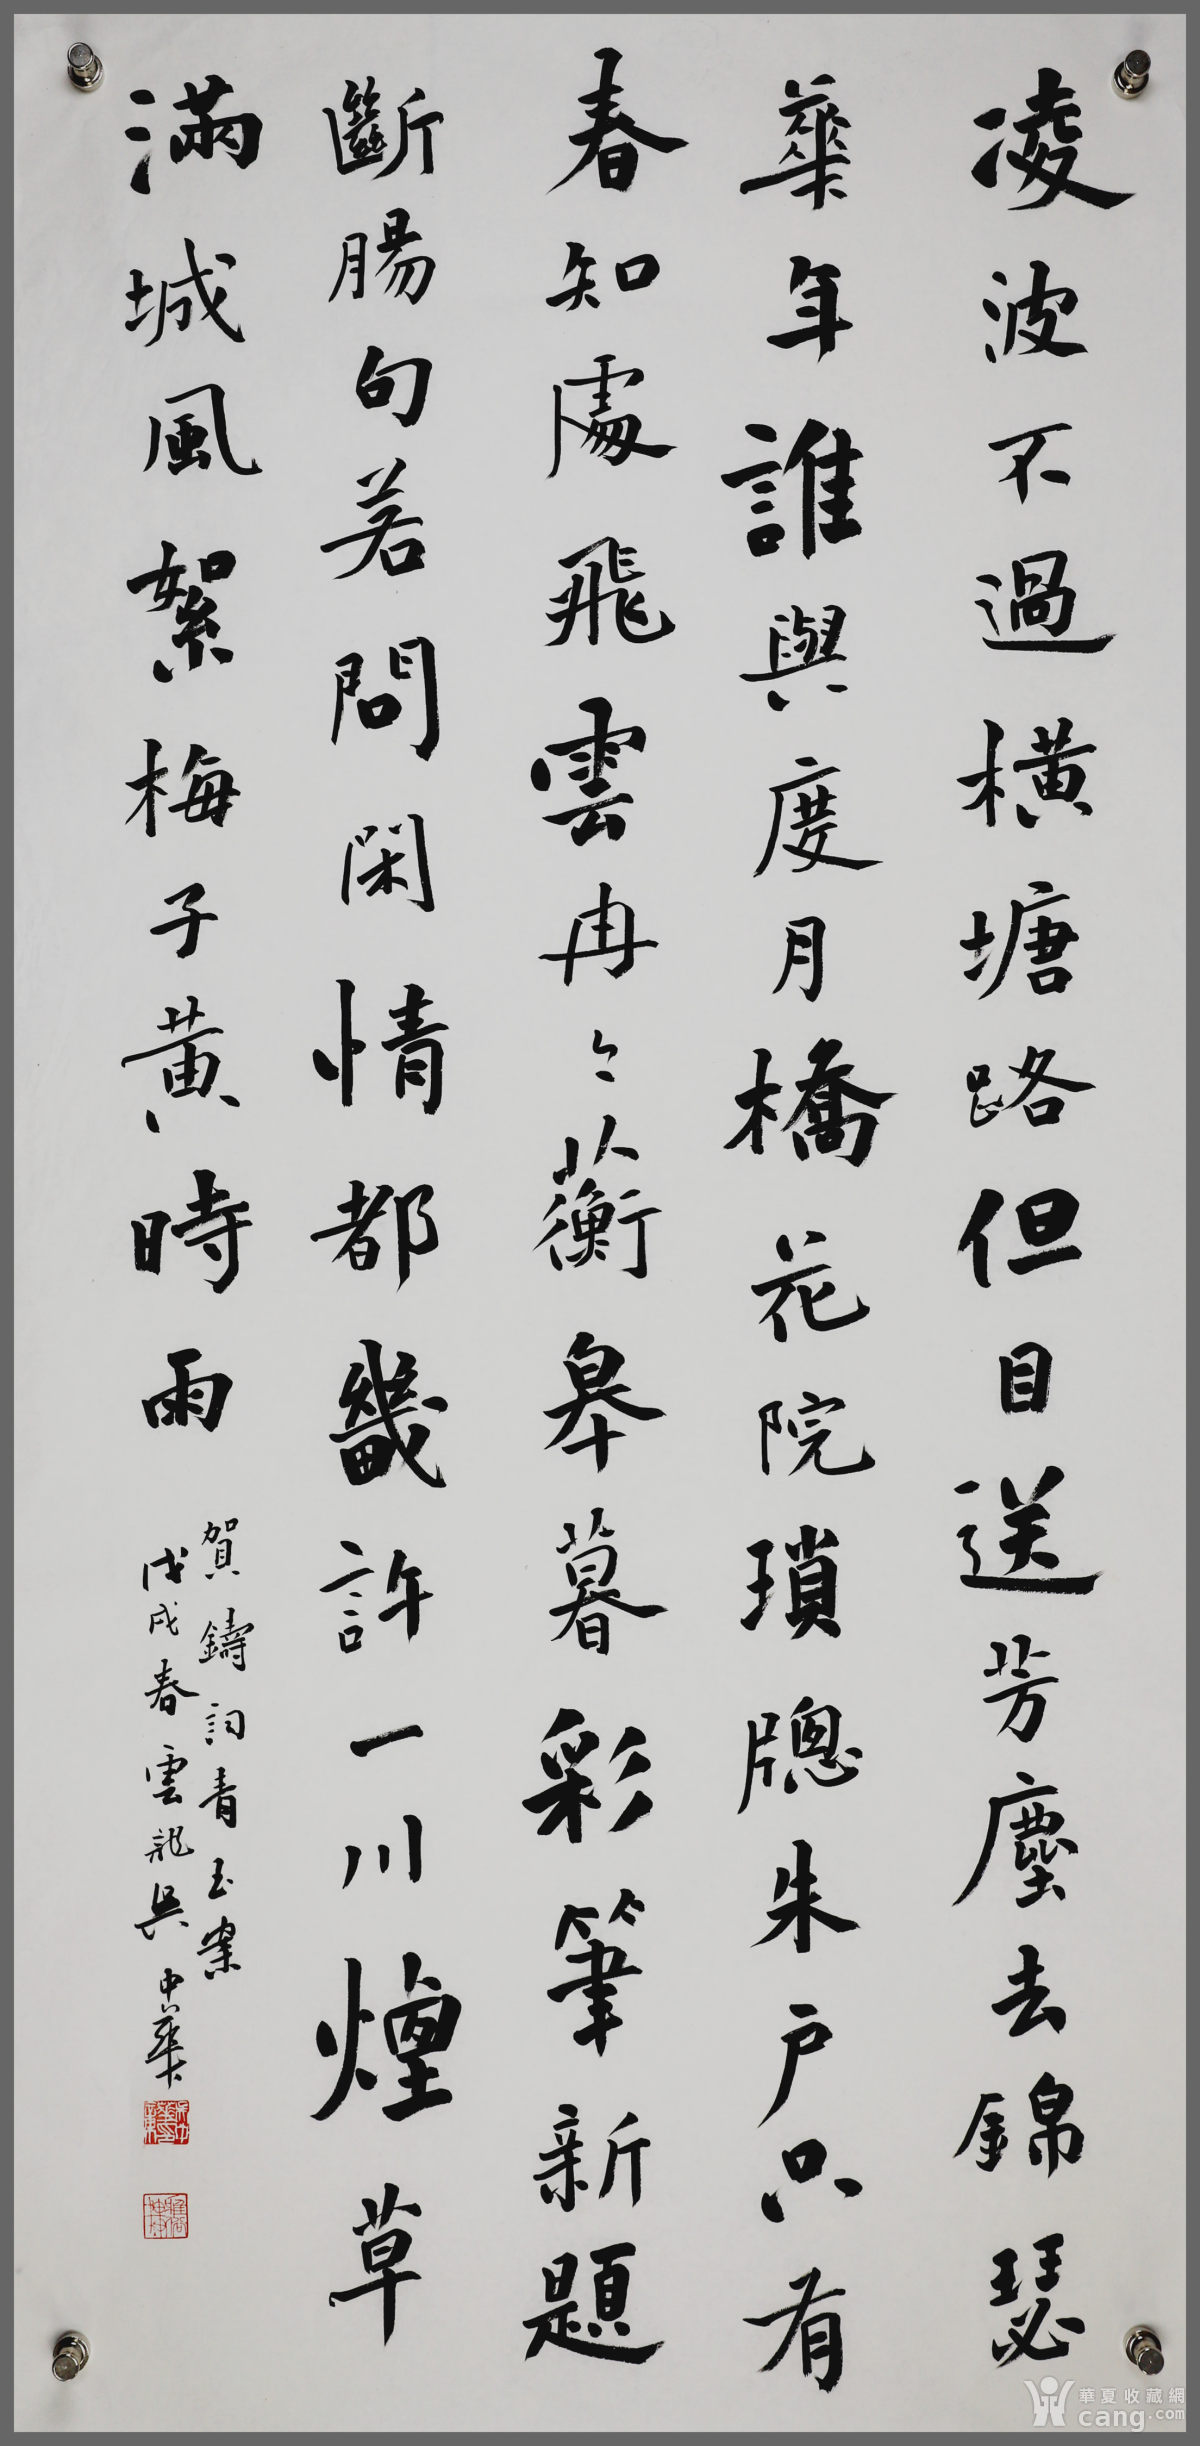 凌波不過橫塘路但目送芳塵去錦瑟
華年誰與度月橋花院瑣牕朱戶只有
春知處飛雲冉〻蘅皋暮彩筆新題
斷腸句若問閑情都幾許一川煙草
滿城風絮梅子黃時雨
賀鑄詞青玉案
戊戌春雲龍吳中華
華夏收藏網
cang.com